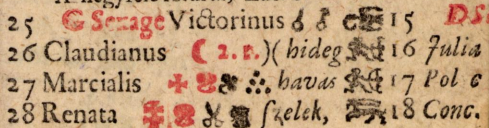 25 G Sexage Victorinus 15
26 Claudianus ( 2. r. )( hideg 16 Julia
27 Marcialis havas 17 Pol c
28 Renata ſzelek, 18 Conc.